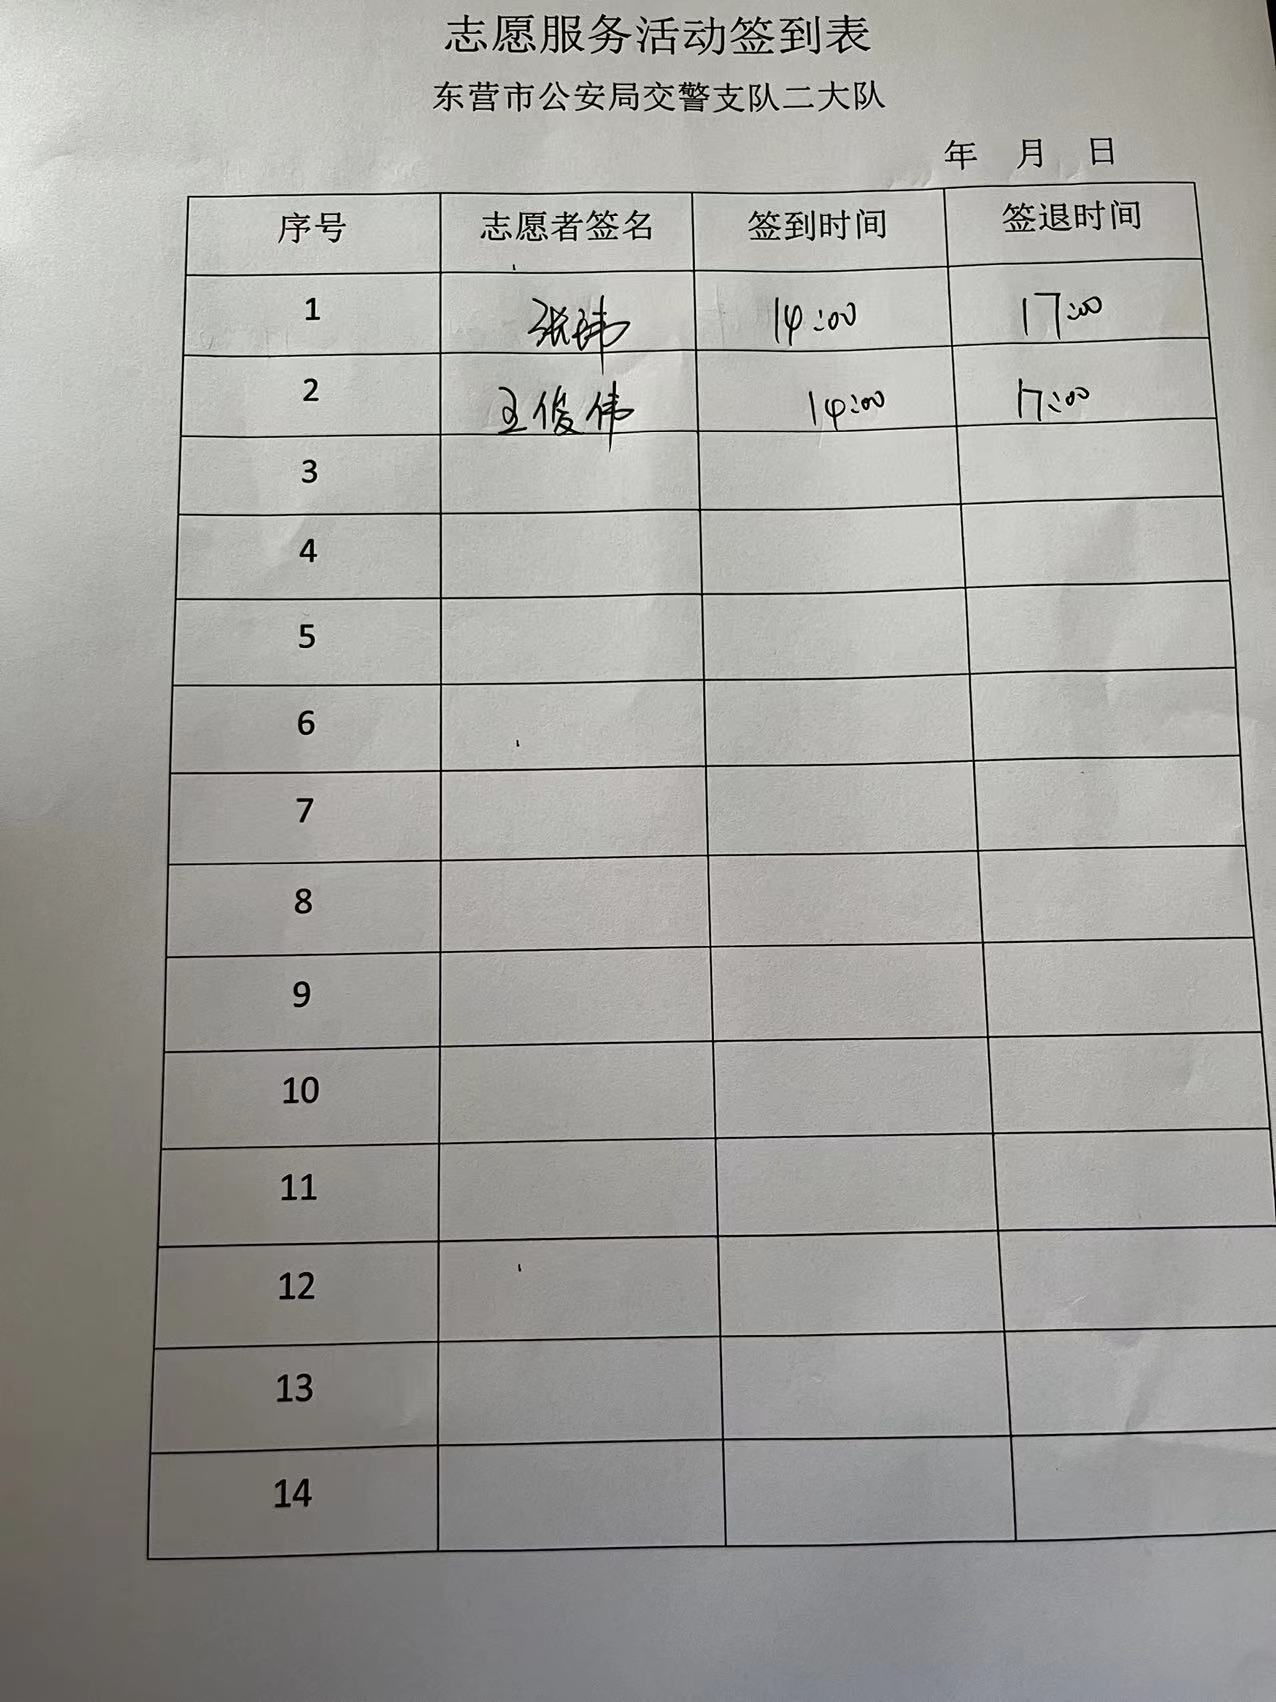 志愿服务活动签到表
东营市公安局交警支队二大队
年 月 日
序号 志愿者签名 签到时间 签退时间
1 张玮 14:00 17:00
2 王俊伟 14:00 17:00
3
4
5
6
7
8
9
10
11
12
13
14